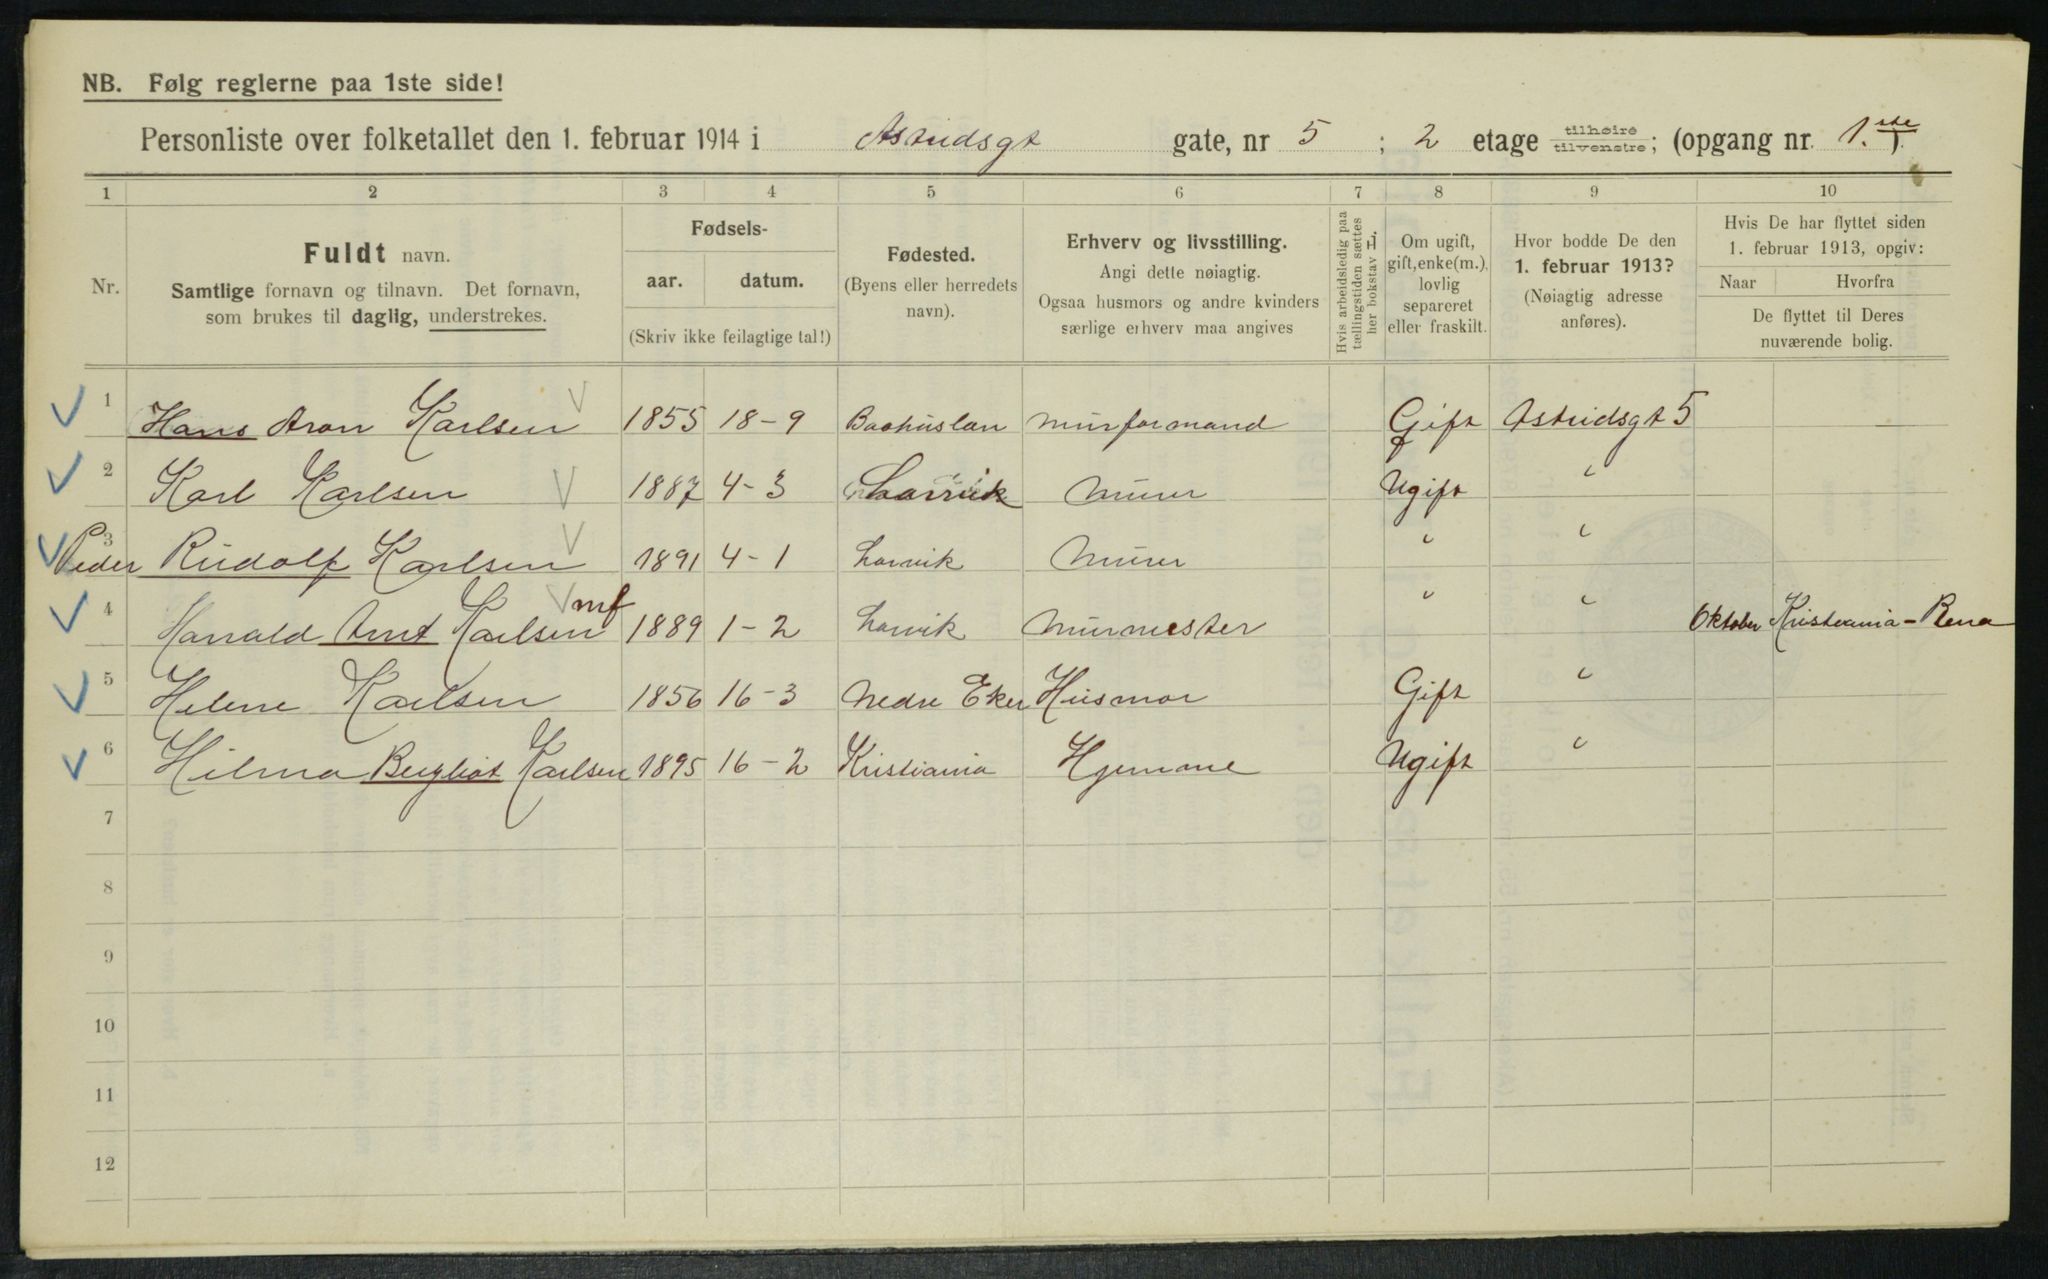 NB. Følg reglerne paa 1ste side!
Personliste over folketallet den 1. februar 1914 i Astridsgt gate, nr 5 ; 2 etage tilhøire/tilvenstre; (opgang nr. 1.ste)
1 2 3 4 5 6 7 8 9 10
Nr.
Fuldt navn.
Samtlige fornavn og tilnavn. Det fornavn,
som brukes til daglig, understrekes.
Fødsels-
aar. datum.
(Skriv ikke feilagtige tal!)
Fødested.
(Byens eller herredets
navn).
Erhverv og livsstilling.
Angi dette nøiagtig.
Ogsaa husmors og andre kvinders
særlige erhverv maa angives
Hvis arbeidsledig paa
tællingstiden sættes
her bokstav L.
Om ugift,
gift, enke(m.),
lovlig
separeret
eller fraskilt.
Hvor bodde De den
1. februar 1913?
(Nøiagtig adresse
anføres).
Hvis De har flyttet siden
1. februar 1913, opgiv:
Naar Hvorfra
De flyttet til Deres
nuværende bolig.
1 Hans Aron Karlsen 1855 18-9 Baahuslan Murformand Gift Astridsgt 5
2 Karl Karlsen 1887 4-3 Larvik Murer Ugift "
3 Peder Rudolf Karlsen 1891 4-1 Larvik Murer " "
4 Harald Arnt Karlsen mf 1889 1-2 Larvik Murmester " " Oktober Kristiania - Rena
5 Helene Karlsen 1856 16-3 Nedre Eker Husmor Gift "
6 Hilma Bergliot Karlsen 1895 16-2 Kristiania Hjemme Ugift "
7
8
9
10
11
12